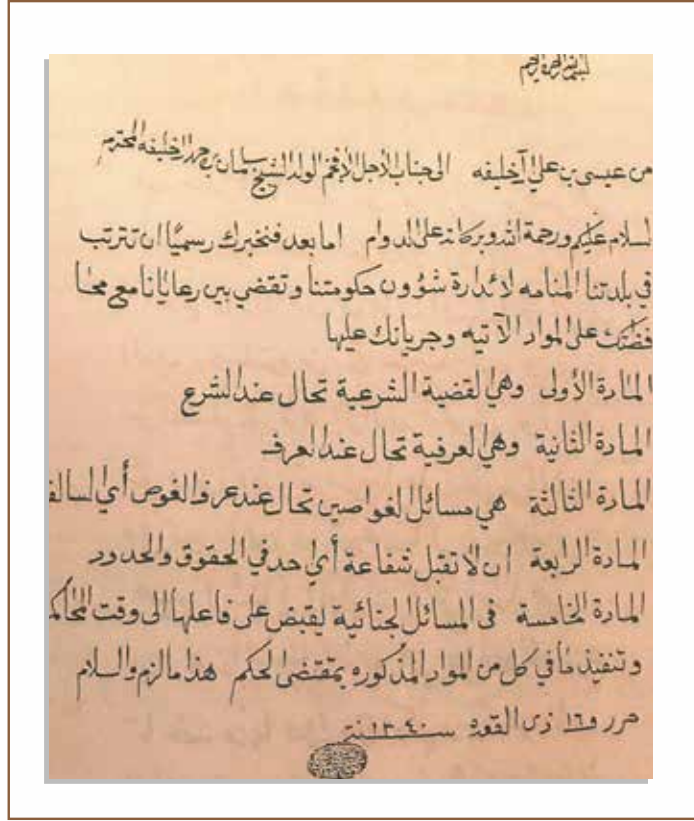 بسم الله الرحمن الرحيم
من عيسى بن علي آل خليفه الى جناب الأجل الأفخم الولد الشيخ سلمان بن حمد الخليفه المحترم
السلام عليكم ورحمة الله وبركاته على الدوام اما بعد فنخبرك رسميًا ان تترتب
في بلدتنا المنامه لائدارة شؤون حكومتنا وتقضي بين رعايانا مع محا
فظتك على المواد الآتيه وجريانك عليها
المادة الأولى وهي القضية الشرعية تحال عند الشرع
المادة الثانية وهي العرفية تحال عند العرف
المادة الثالثة هي مسائل الغواصين تحال عند عرف الغوص أي السالفة
المادة الرابعة ان لا تقبل شفاعة أي احد في الحقوق والحدود
المادة الخامسة في المسائل الجنائية يقبض على فاعلها الى وقت المحاكمة
وتنفيذ ما في كل من المواد المذكوره بمقتضى الحكم هذا ما لزم والسلام
حرر و ١٦ ذي القعدة سنة ١٣٤٠